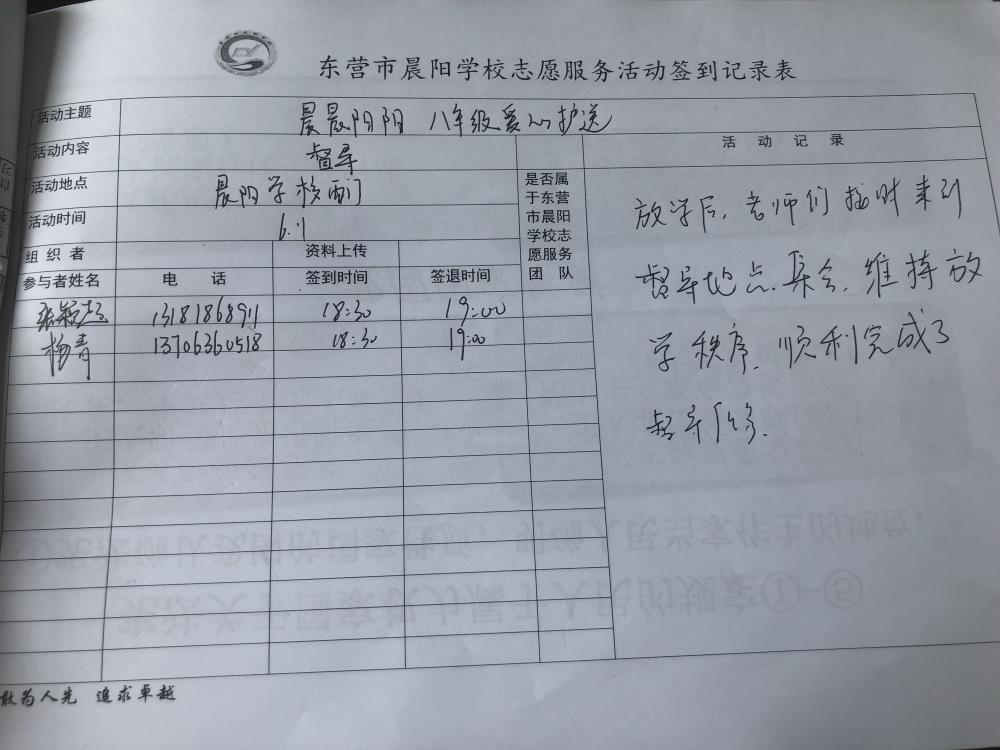 东营市晨阳学校志愿服务活动签到记录表
活动主题 晨晨阳阳 八年级爱心护送
活动内容 督导
活动地点 晨阳学校西门
活动时间 6.11
组织者 资料上传
参与者姓名 电话 签到时间 签退时间
是否属
于东营
市晨阳
学校志
愿服务
团队
13181868911 18:30 19:00
杨青 13706360518 18:30 19:00
活动记录
放学后,老师们按时来到
督导地点集合,维持放
学秩序,顺利完成了
督导任务.
敢为人先 追求卓越